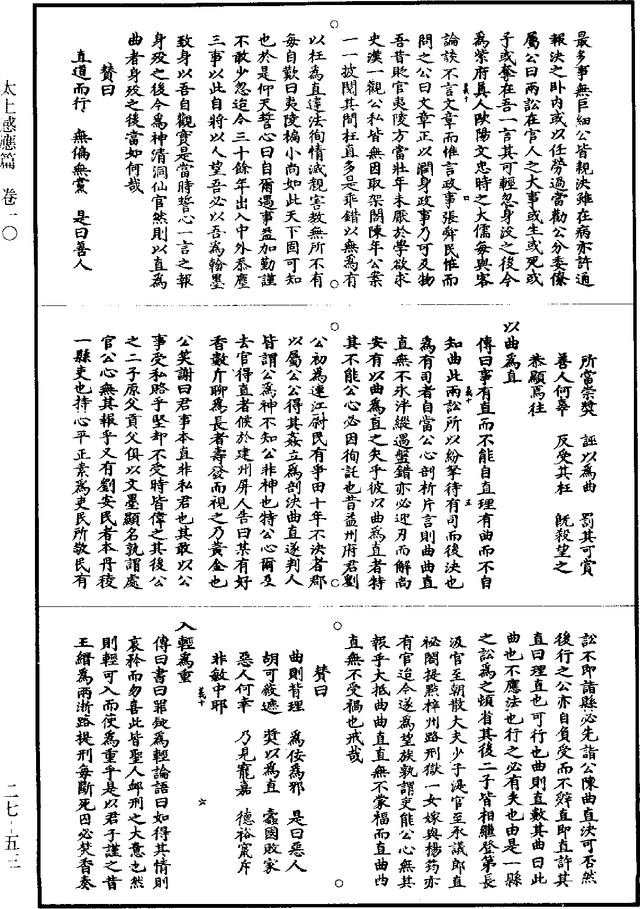 最多事無巨細公皆親決雖在病亦許通
報決之卧内或以任勞過當勸公分委僚
屬公曰兩訟在官人之大事或生或死或
子或奪在吾一言其可輕忽身沒之後今
為紫府真人歐陽文忠時之大儒每與客
論談不言文章而惟言政事張舜民怪而
問之公曰文章正以潤身政事乃可及物
吾昔貶官夷陵方當壯年未厭於學欲求
史漢一觀公私皆無因取架閣陳年公案
一一披閱其間枉直多是乖錯以無為有
以枉為直違法徇情滅親害教無所不有
每自歎曰夷陵褊小尚如此天下固可知
也於是仰天誓心曰自爾遇事益加勤謹
不敢少忽迨今三十餘年出入中外忝塵
三事以此自將以人望吾必以吾為翰墨
致身以吾自觀實是當時誓心一言之報
身殁之後今為神清洞仙官然則以直為
曲者身殁之後當如何哉
贊曰
直道而行　無偏無黨　是曰善人
所當崇獎　誣以為曲　罰其可賞
善人何辜　反受其枉　既殺望之
恭顯焉往
以曲為直
傳曰事有直而不能自直理有曲而不自
知曲此兩訟所以紛拏待有司而後決也
為有司者自當公心剖析片言則曲曲直
直無不氷泮縱遇盤錯亦必迎刃而解尚
安有以曲為直之失乎彼以曲為直者特
其不能公心必因徇託也昔益州府君劉
公初為連江尉民有爭田十年不決者郡
以屬公公得其姦立為剖決曲直遂判人
皆謂公為神不知公非神也特公心爾及
去官得直者候於建州屏人告曰某有好
香數斤聊為長者壽發而視之乃黄金也
公笑謝曰君事本直非私君也其敢以公
事受私賂乎堅却不受時皆偉之其後公
之二子原父貢父俱以文墨顯名孰謂處
官公心無其報乎又有劉安民者本丹稜
一縣吏也持心平正素為吏民所敬民有
訟不即詣縣必先詣公陳曲直決可否然
後行之公亦自負受而不辤直即直許其
直曰理直也可行也曲則直數其曲曰此
曲也不應法也行之必有失也由是一縣
之訟為之頓省其後二子皆相繼登第長
汲官至朝散大夫少子湜官至承議郎直
祕閣提㸃梓州路刑獄一女嫁與楊筠亦
有官迨今遂為望族孰謂吏能公心無其
報乎大抵曲曲直直無不蒙福而直曲曲
直無不受禍也戒哉
贊曰
曲則背理　為佞為邪　是曰惡人
胡可篏遮　奬以為直　蠹國敗家
惡人何幸　乃見寵嘉　德裕竄斥
非敏中耶
入輕為重
傳曰書曰罪疑為輕論語曰如得其情則
哀矜而勿喜此皆聖人䘏刑之大意也然
則輕可入而使為重乎是以君子謹之昔
王縉為兩浙路提刑每斷死囚必焚香奏
義十
四
義十
五
義十
六
太上感應篇　卷一〇
二七-五三